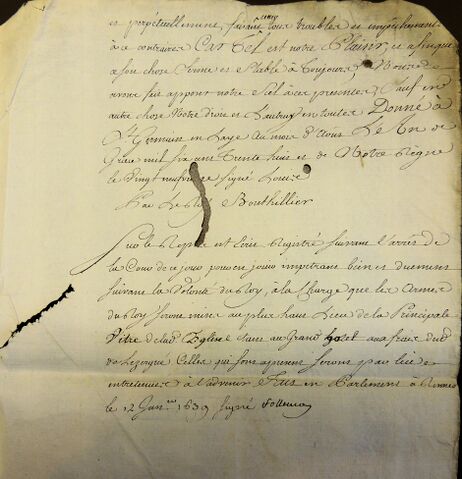 et perpetuellement, faisant cesser tous troubles et empeschemens
à ce contraires Car Tel est notre Plaisir, et afin que
ce soit chose ferme et stable à Toujours, Nous
avons fait apposer notre Sel à ces presentes, Sauf en
autre chose Notre droit et L'autruy en toutes Donné à
St Germain en Laye au mois d'Aout L'an de
Grace mil six cens Trente huit et de Notre Règne
le Vingt neufvie signé Louis
Par Le Roy Bouthillier
Sur le Reply est Ecrit Registré suivant l'arrest de
la Cour de ce jour pour en jouir impetrans bien et duement
suivant la volonté du Roy, à la Charge que les Armes
du Roy seront mises au plus haut Lieu de la Principale
Vitre de lad. Eglise dans au Grand
de Lezergué Celles qui sont seront par lui
entretenues à l'advenir Fait en Parlement à Rennes
le 12 Janer 1639 signé